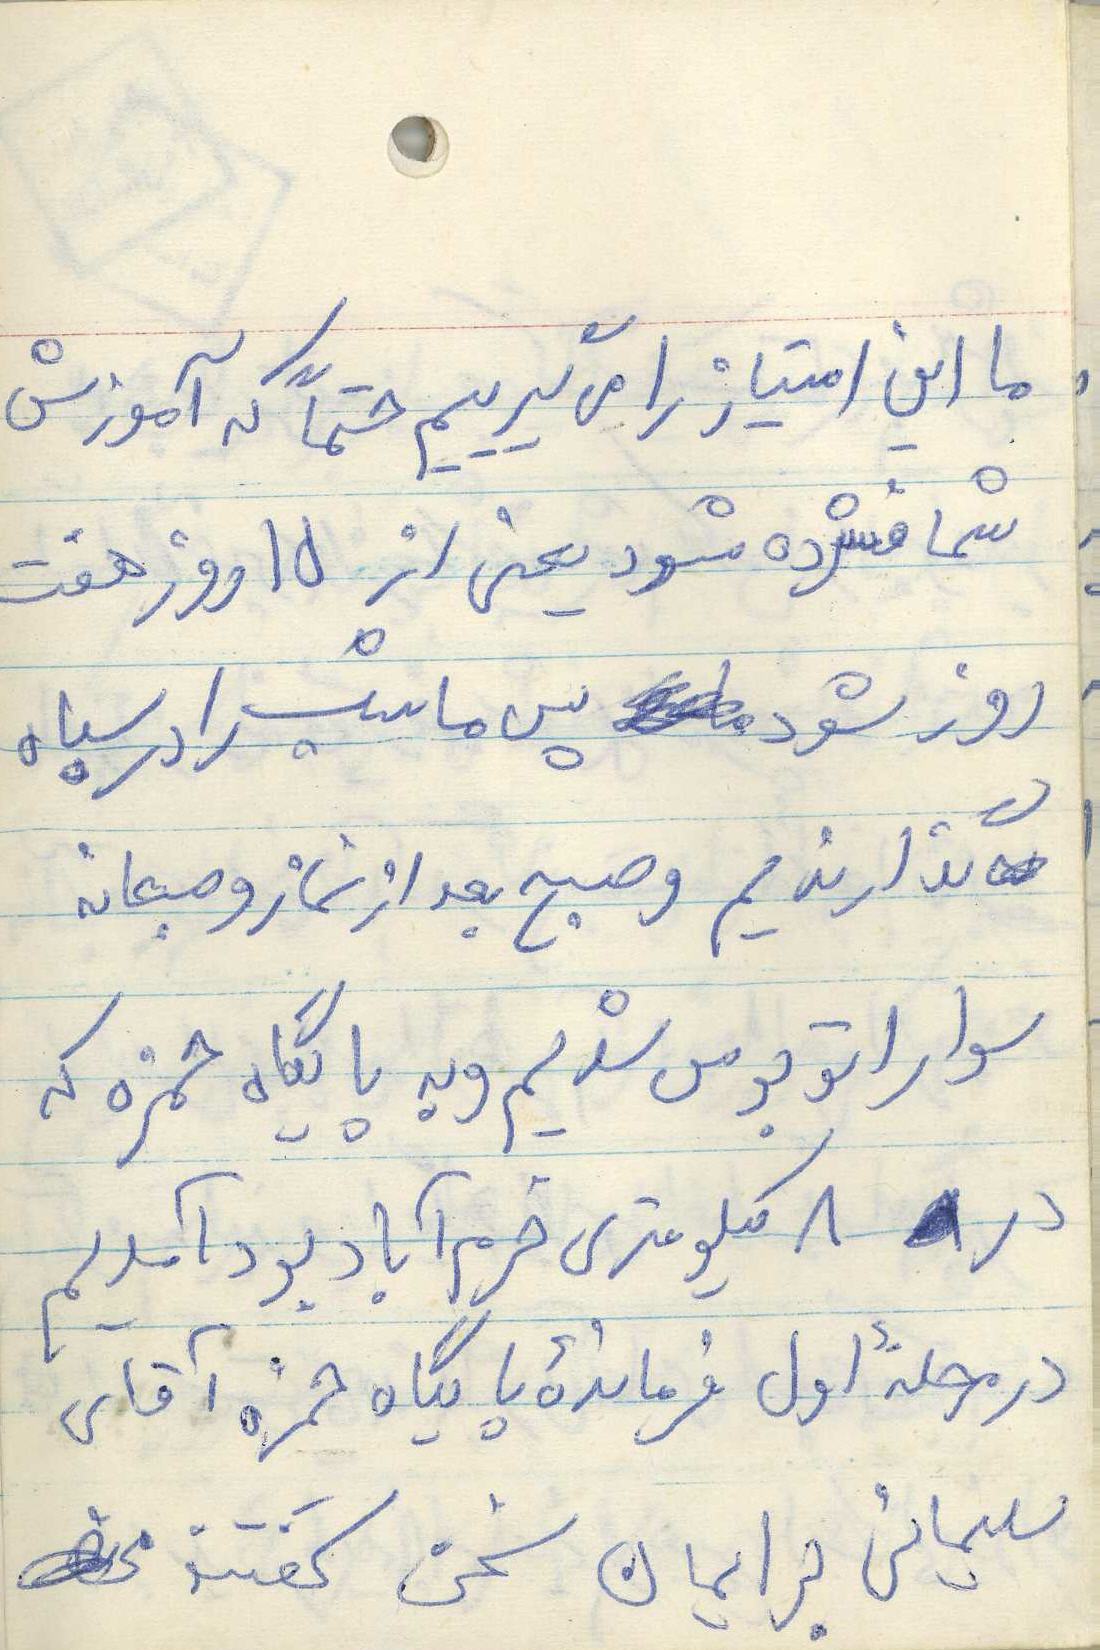 ما این امتیاز را می‌گیریم حتماً که آموزش
شما فشرده شود یعنی از ۱۵ روز هفت
روز شود پس ما شب را در سپاه
گذارندیم و صبح بعد از نماز و صبحانه
سوار اتوبوس شدیم و به پایگاه حمزه که
در ۸ کیلومتری خرم آباد بود آمدیم
در مرحلهٔ اول فرماندهٔ پایگاه حمزه آقای
سلیمانی برایمان سخن گفتند